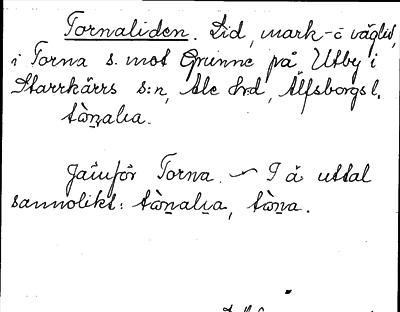 Tornaliden. Lid, mark- o väglid,
i Torna s. mot Grunne på Utby i
Starrkärrs s:n, Ale hrd, Älfsborgs l.
tὼṉalıa.
Jämför Torna. ~ I ä uttal
sannolikt: tὼṉalı̱a, tὼṉa.